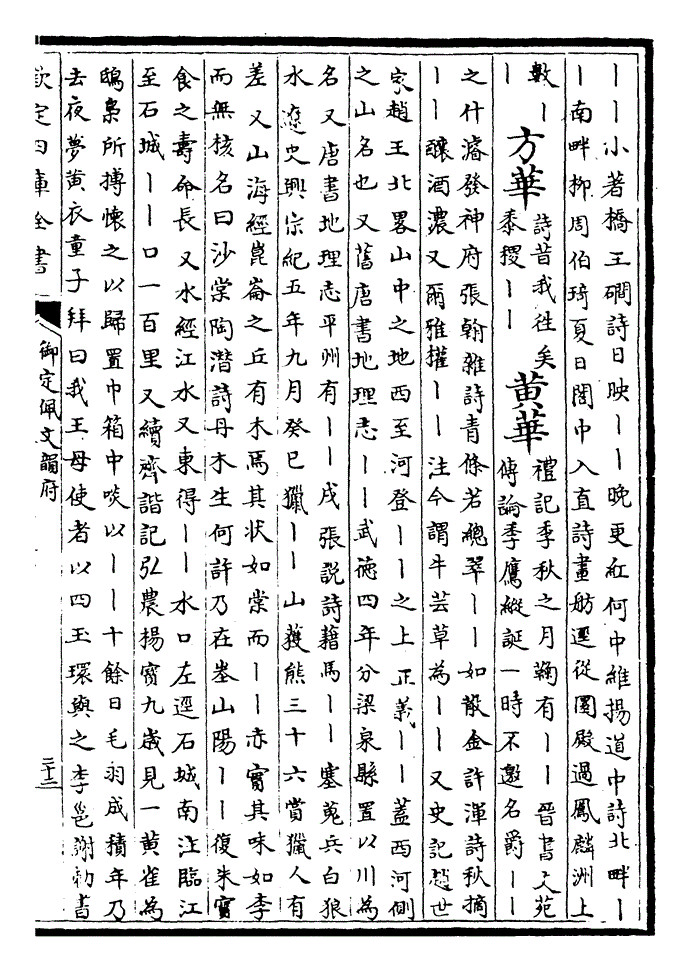 丨丨小著橋王磵詩日映丨丨晚更紅何中維揚道中詩北畔丨
丨南畔柳周伯琦夏日閤中入直詩畫舫邐從圓殿過鳳麟洲上
數丨
丨
方華
詩昔我往矣
黍稷丨丨
黃華
禮記季秋之月鞠有丨丨晉書文苑
傳論季鷹縱誕一時不邀名爵丨丨
之什濬發神府張翰雜詩青條若總翠丨丨如散金許渾詩秋摘
丨丨釀酒濃又爾雅權丨丨注今謂牛芸草為丨丨又史記趙世
家趙王北畧山中之地西至河登丨丨之上正義丨丨蓋西河側
之山名也又舊唐書地理志丨丨武德四年分梁泉縣置以川為
名又唐書地理志平州有丨丨戍張説詩藉馬丨丨塞蒐兵白狼
水遼史興宗紀五年九月癸巳獵丨丨山獲熊三十六賞獵人有
差又山海經崑崙之丘有木焉其状如棠而丨丨赤實其味如李
而無核名曰沙棠陶潛詩丹木生何許乃在峚山陽丨丨復朱實
食之壽命長又水經江水又東得丨丨水口左逕石城南注臨江
至石城丨丨口一百里又續齊諧記弘農楊寳九歲見一黄雀為
鴟梟所搏懷之以歸置巾箱中啖以丨丨十餘日毛羽成積年乃
去夜夢黄衣童子拜曰我王母使者以四玉環與之李邕謝勅書
欽定四庫全書
御定佩文韻府
三十二